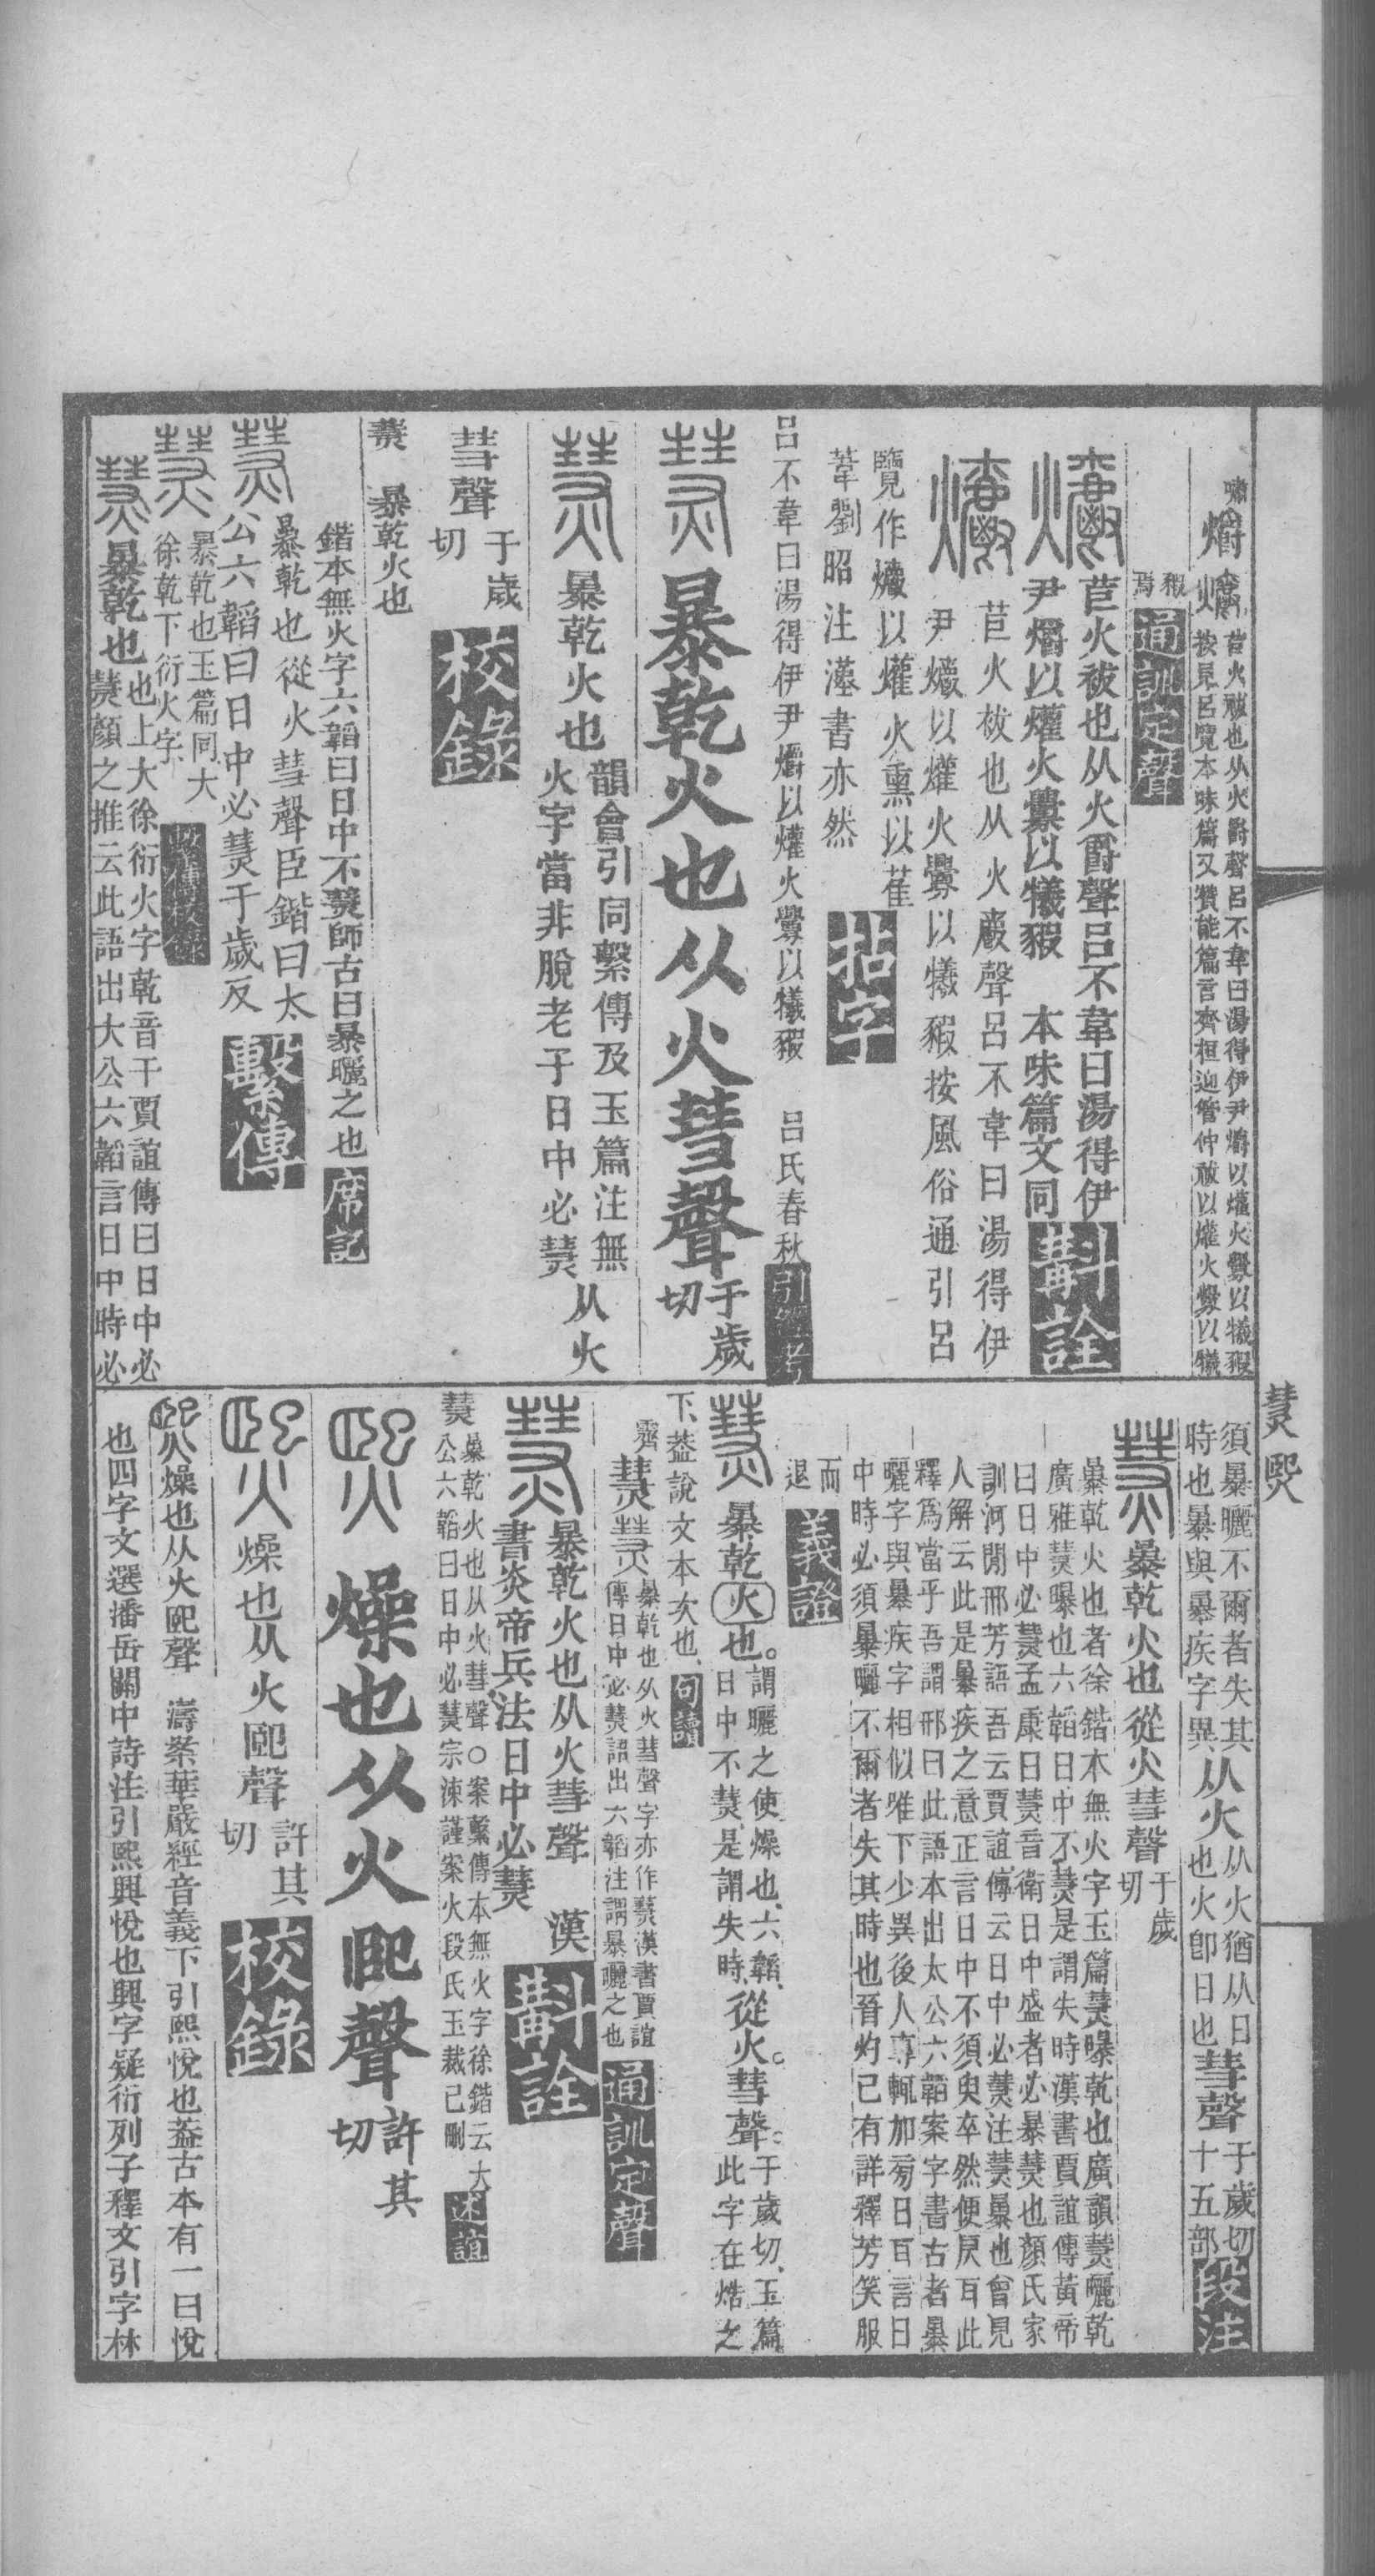 嘯 爝 爝
苣火祓也从火爵聲呂不韋曰湯得伊尹爝以爟火釁以犧豭
按見呂覽本味篇又贊能篇言齊桓迎管仲祓以爟火釁以犧
豭焉 通訓定聲
苣火祓也从火爵聲呂不韋曰湯得伊
尹爝以爟火釁以犧豭 本味篇文同 斠詮
苣火祓也从火爵聲呂不韋曰湯得伊
尹爝以爟火釁以犧豭按風俗通引呂
覽作爝以爟火熏以萑
葦劉昭注漢書亦然 拈字
呂不韋曰湯得伊尹爝以爟火釁以犧豭 呂氏春秋 引經考
熭 暴乾火也从火彗聲 于歲切
熭 暴乾火也 韻會引同繫傳及玉篇注無
火字當非脫老子日中必熭 从火
彗聲 于歲切 校錄
熭 暴乾火也
鍇本無火字六韜曰日中不熭師古曰暴曬之也 席記
熭 暴乾也從火彗聲臣鍇曰太
公六韜曰日中必熭于歲反 繫傳
熭 暴乾也玉篇同大
徐乾下衍火字
熭 暴乾也 也上大徐衍火字乾音干賈誼傳曰日中必
熭顏之推云此語出大公六韜言日中時必
熭 熙
須暴曬不爾者失其
時也暴與暴疾字異 从火 从火猶从日
也火卽日也 彗聲 于歲切
十五部 段注
熭 暴乾火也從火彗聲 于歲切
暴乾火也者徐鍇本無火字玉篇熭曝乾也廣韻熭曬乾
廣雅熭曝也六韜日中不熭是謂失時漢書賈誼傳黃帝
曰日中必熭孟康曰熭音衛日中盛者必暴熭也顏氏家
訓河閒邢芳語吾云賈誼傳云日中必熭注熭暴也曾見
人解云此是暴疾之意正言日中不須臾卒然便戾耳此
釋爲當乎吾謂邢曰此語本出太公六韜案字書古者暴
曬字與暴疾字相似唯下少異後人專輒加菊日耳言日
中時必須暴曬不爾者失其時也晉灼已有詳釋芳笑服
而退 義證
熭 暴乾火也。謂曬之使燥也、六韜、
日中不熭、是謂失時、從火。彗聲。于歲切、玉篇
此字在焅之
下、葢說文本次也、 句讀
齊 熭 熭 暴乾也从火彗聲字亦作熭漢書賈誼
傳日中必熭語出六韜注謂暴曬之也 通訓定聲
熭 暴乾火也从火彗聲 漢
書炎帝兵法日中必熭 斠詮
熭 暴乾火也从火彗聲○案繫傳本無火字徐鍇云大
公六韜曰日中必熭宗涑謹案火段氏玉裁已刪 述誼
熙 燥也从火巸聲 許其切
熙 燥也从火巸聲 許其切 校錄
熙 燥也从火巸聲 濤案華嚴經音義下引熙悅也葢古本有一曰悅
也四字文選潘岳關中詩注引熙興悅也興字疑衍列子釋文引字林